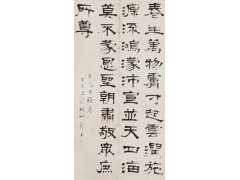 春生萬物膚寸起雲潤施
源流鴻濛沛宣並天四海
莫不蒙恩聖朝肅敬眾庶
所尊